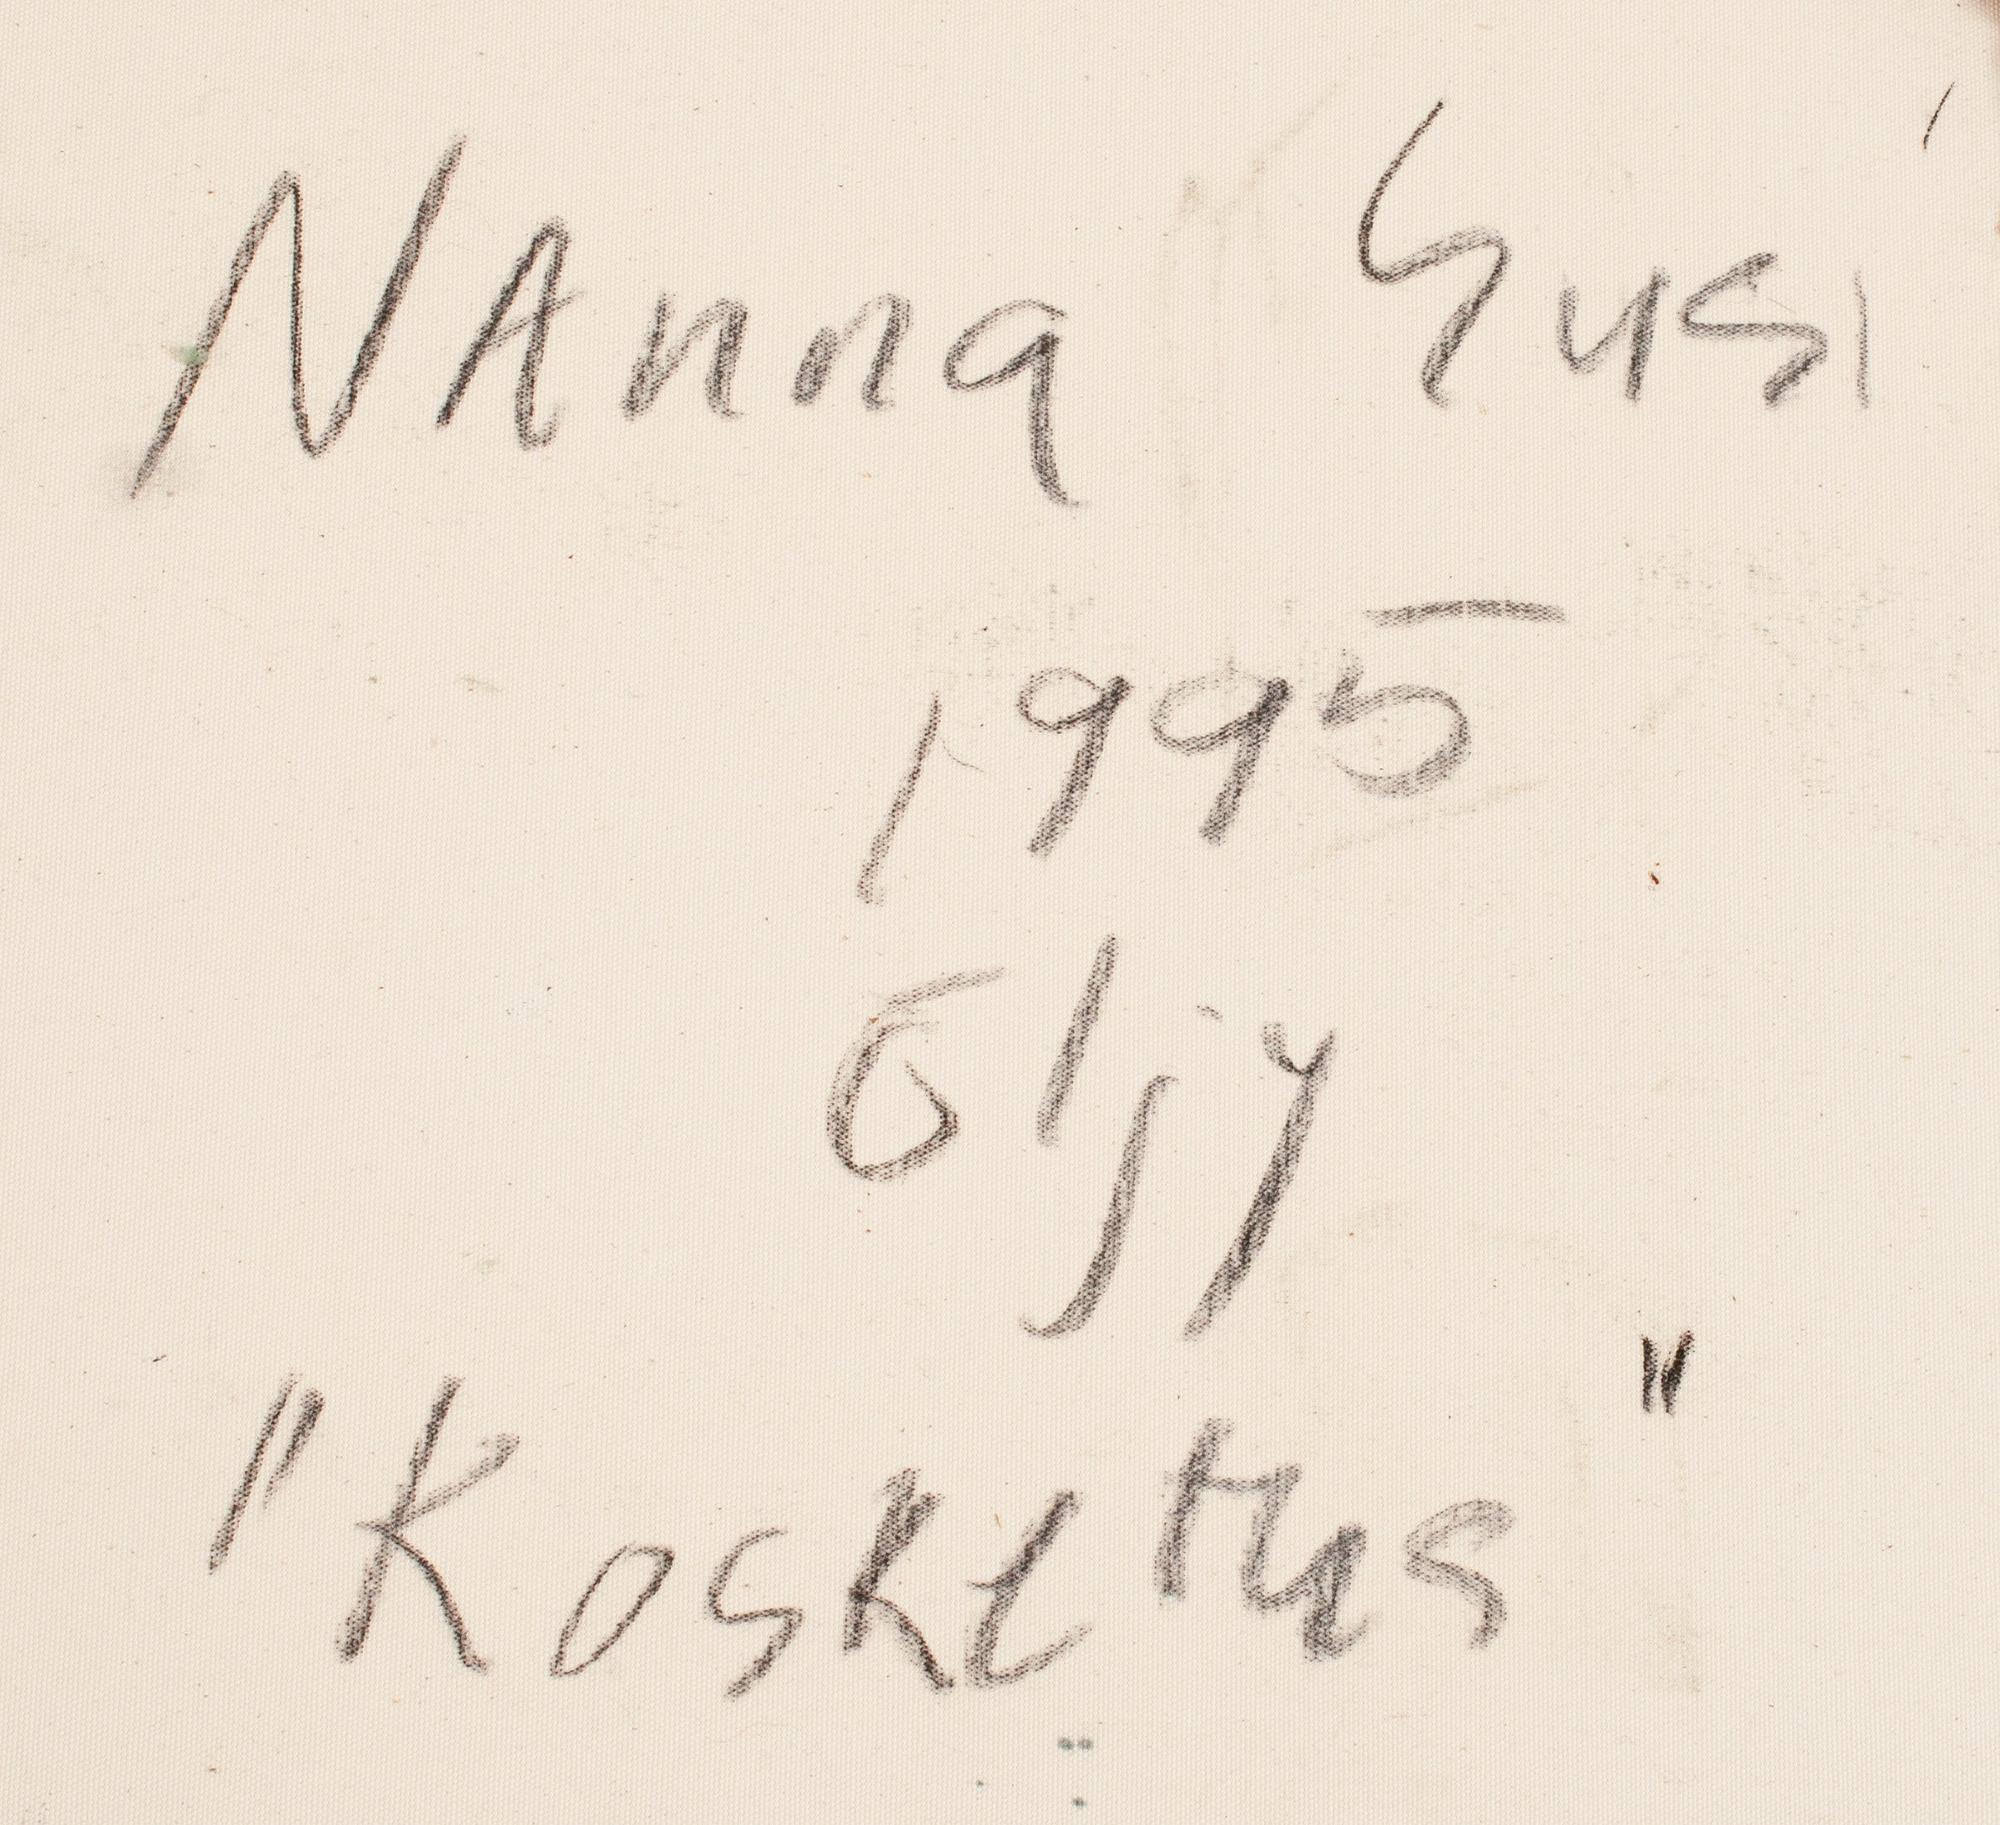 NAnna Susi
1995
öljy
"Kosketus"